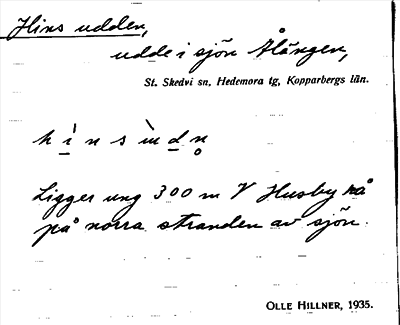 Hins udden,
udde i sjön Ålången,
St. Skedvi sn, Hedemora tg, Kopparbergs län.
h i̠̇ n s ùd̠n̥
Ligger ung 300 m V Husby
på norra stranden av sjön.
OLLE HILLNER, 1935.